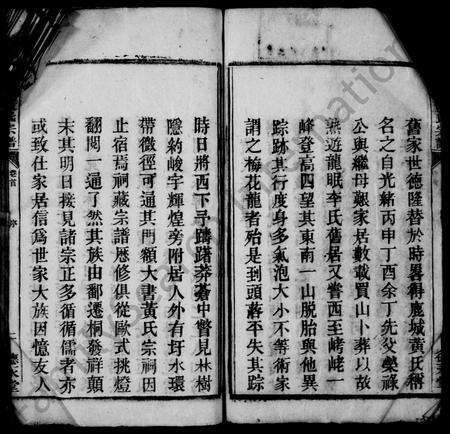 舊家世德隆替於時畧得鹿城黃氏稱
名之自光緒丙申丁酉余丁先父榮祿
公與繼母艱家居數載買山卜葬以故
熟遊龍眠李氏舊居又嘗西至峔峔一
峰登高四望其東南一山脫胎與他異
踪跡其行度身多氣泡大小不等術家
謂之梅花龍者殆是到頭落平失其踪
時日將西下孑躊躇莽蒼中瞥見林樹
隱約峻宇輝煌旁附居人外有圩水環
帶微徑可通其門額大書黃氏宗祠因
止宿焉祠藏宗譜歷修俱從歐式挑燈
翻閱一通了然其族由鄱遷桐發祥顛
末其明日接見諸宗正多循循儒者亦
或致仕家居信爲世家大族因憶友人
卷首
德天堂
FamilySearch International